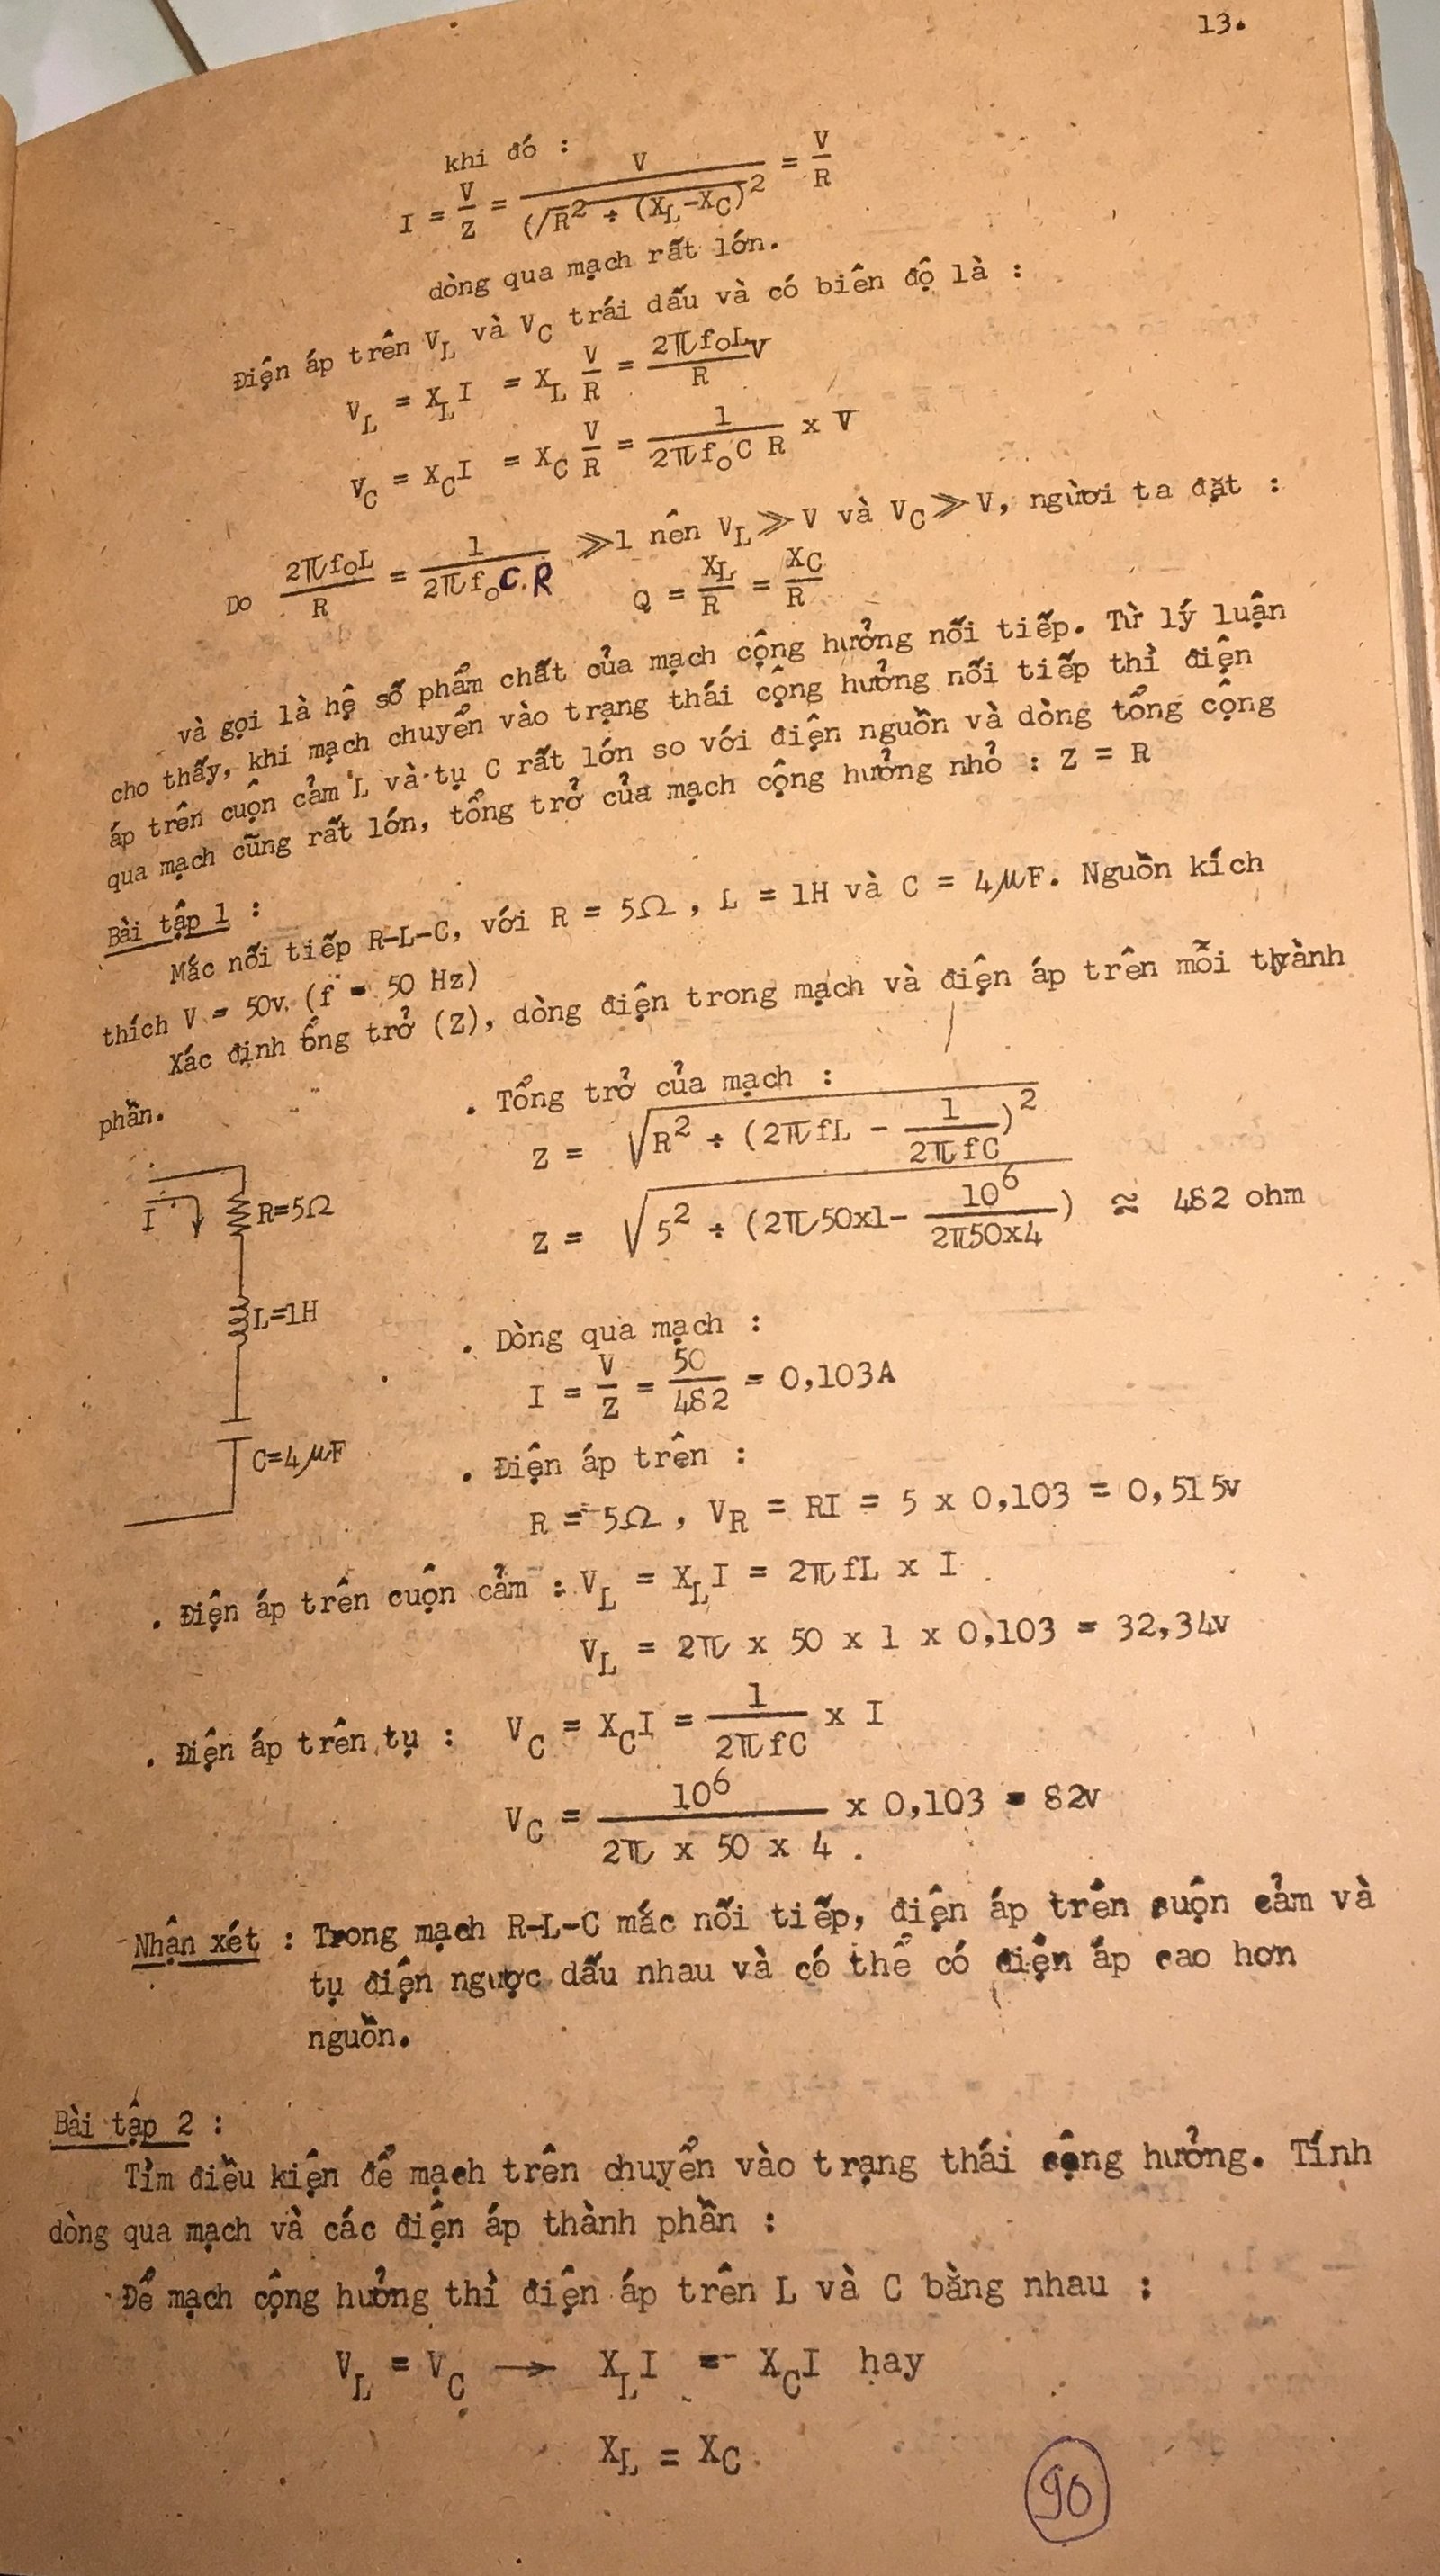 13.
khi đó :
I = V/Z = V/(√R² + (X_L-X_C)² = V/R
dòng qua mạch rất lớn.
Điện áp trên V_L và V_C trái dấu và có biên độ là :
V_L = X_L I = X_L V/R = 2πf₀L/R V
V_C = X_C I = X_C V/R = 1/2πf₀C R x V
Do 2πf₀L/R = 1/2πf₀C.R ≫1 nên V_L ≫ V và V_C ≫ V, người ta đặt :
Q = X_L/R = X_C/R
và gọi là hệ số phẩm chất của mạch cộng hưởng nối tiếp. Từ lý luận
cho thấy, khi mạch chuyển vào trạng thái cộng hưởng nối tiếp thì điện
áp trên cuộn cảm L và tụ C rất lớn so với điện nguồn và dòng tổng cộng
qua mạch cũng rất lớn, tổng trở của mạch cộng hưởng nhỏ : Z = R
Bài tập 1 :
Mắc nối tiếp R-L-C, với R = 5Ω, L = 1H và C = 4μF. Nguồn kích
thích V = 50v. (f = 50 Hz)
Xác định ổng trở (Z), dòng điện trong mạch và điện áp trên mỗi thành
phần.
. Tổng trở của mạch :
Z = √R² + (2πfL - 1/2πfC)²
I
R=5Ω
Z = √5² + (2π50x1- 10⁶/2π50x4) ≈ 482 ohm
L=1H
. Dòng qua mạch :
I = V/Z = 50/482 = 0,103A
C=4μF
. Điện áp trên :
R = 5Ω, V_R = RI = 5 x 0,103 = 0,515v
. Điện áp trên cuộn cảm : V_L = X_L I = 2πfL x I
V_L = 2π x 50 x 1 x 0,103 = 32,34v
. Điện áp trên tụ : V_C = X_C I = 1/2πfC x I
V_C = 10⁶/2π x 50 x 4 . x 0,103 = 82v
Nhận xét : Trong mạch R-L-C mắc nối tiếp, điện áp trên cuộn cảm và
tụ điện ngược dấu nhau và có thể có điện áp cao hơn
nguồn.
Bài tập 2 :
Tìm điều kiện để mạch trên chuyển vào trạng thái cộng hưởng. Tính
dòng qua mạch và các điện áp thành phần :
Để mạch cộng hưởng thì điện áp trên L và C bằng nhau :
V_L = V_C → X_L I = X_C I hay
X_L = X_C
90